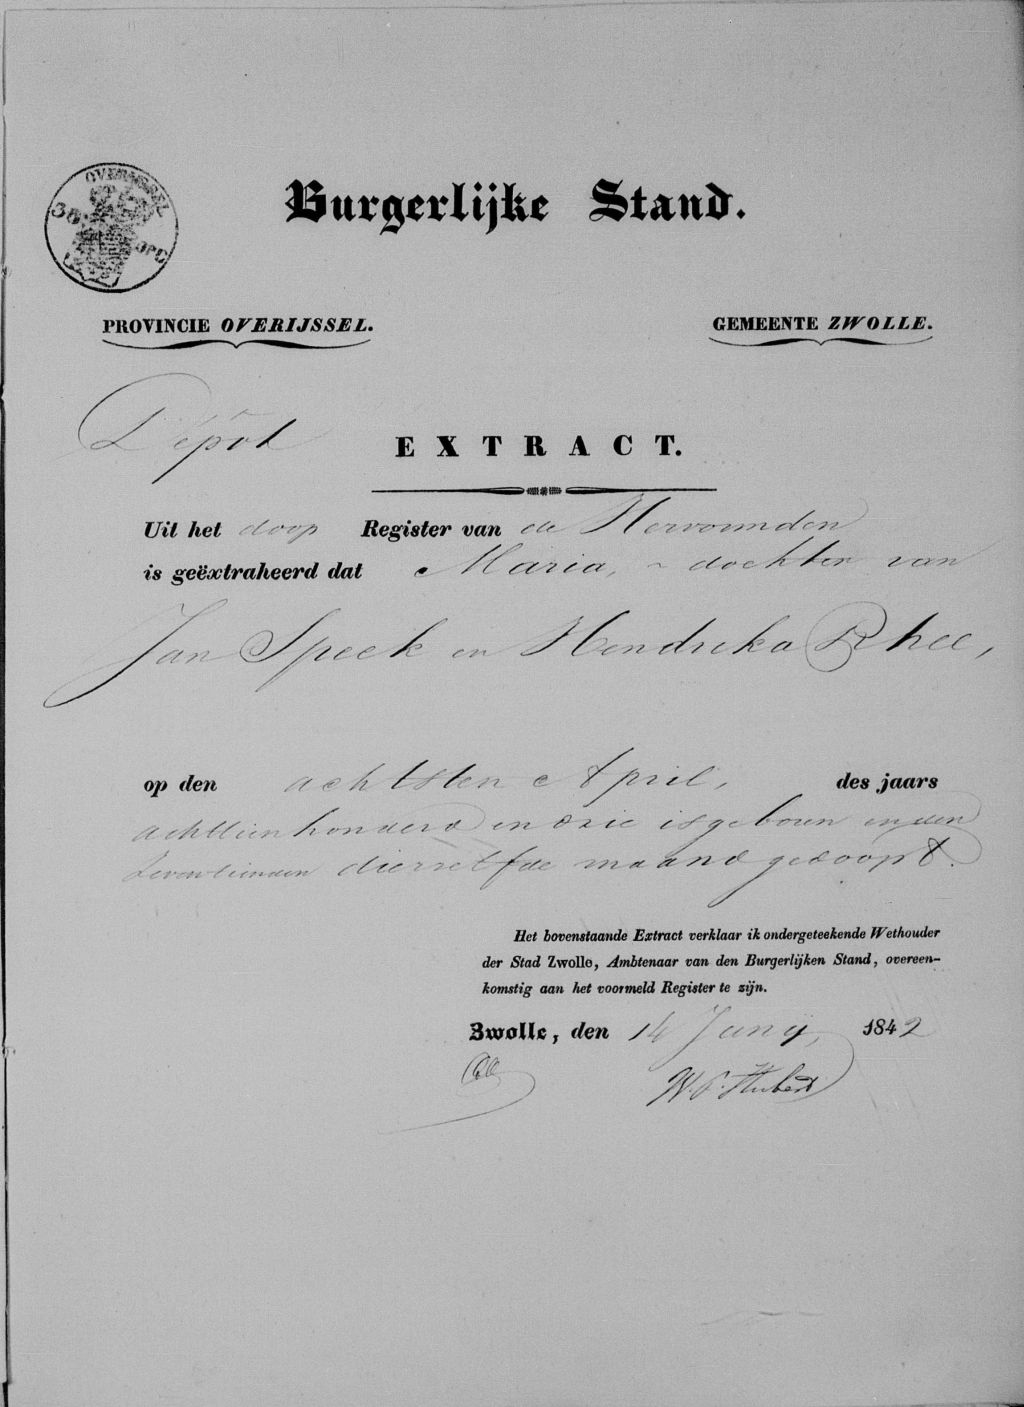 OVERIJSSEL
38
OPC
Burgerlijke Stand.
PROVINCIE OVERIJSSEL.
GEMEENTE ZWOLLE.
Dépot
EXTRACT.
Uit het doop Register van de Hervormden
is geëxtraheerd dat Maria, dochter van
Jan Speek en Hendrika Rhee,
op den achtsten April, des jaars
achttien honderd en drie is geboren en den
zeventienden dierzelfde maand gedoopt.
Het bovenstaande Extract verklaar ik ondergeteekende Wethouder
der Stad Zwolle, Ambtenaar van den Burgerlijken Stand, overeen-
komstig aan het voormeld Register te zijn.
Zwolle, den 14 Junij, 1842